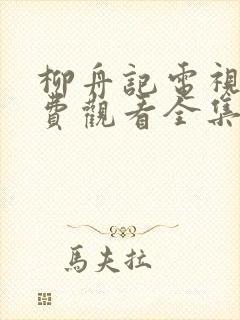 柳舟記電視
費觀看全集
馬夫拉